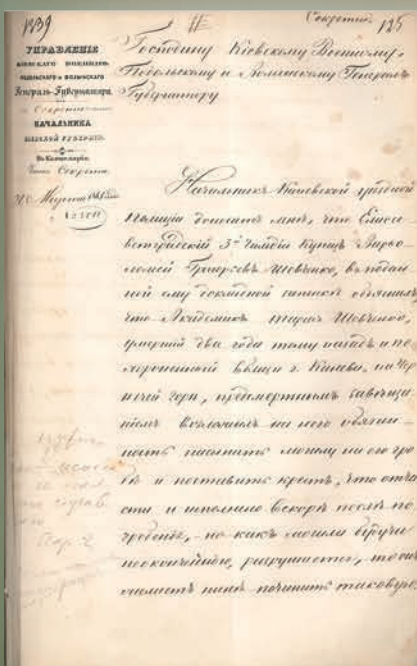 1839
Секретно
125
УПРАВЛЕНІЕ
КІЕВСКАГО ВОЕННАГО,
ПОДОЛЬСКАГО и ВОЛЫНСКАГО
Генералъ-Губернатора.
НАЧАЛЬНИКА
КІЕВСКОЙ ГУБЕРНІИ.
Въ Канцелярію
Господину Кіевскому Военному,
Подольскому и Волынскому Генералъ
Губернатору
Начальникъ Каневской уѣздной
полиціи доноситъ мнѣ, что Елиса
ветградскій 3й гильдіи Купецъ Варѳо
ломей Григорьевъ Шевченко, въ подан
ной ему докладной запискѣ объяснилъ
что Академикъ Тарасъ Шевченко,
умершій два года тому назадъ и по
хороненный вблизи г. Канева, на Чер
нечей горѣ, предсмертнымъ завѣща
ніемъ возложилъ на него обязан
ность насыпать могилу на его гро
бѣ и поставить крестъ, что отча
сти и исполнено вскорѣ послѣ по
гребенія, но какъ могила будучи
неоконченною, разрушается, то онъ
желаетъ нынѣ починить таковую,